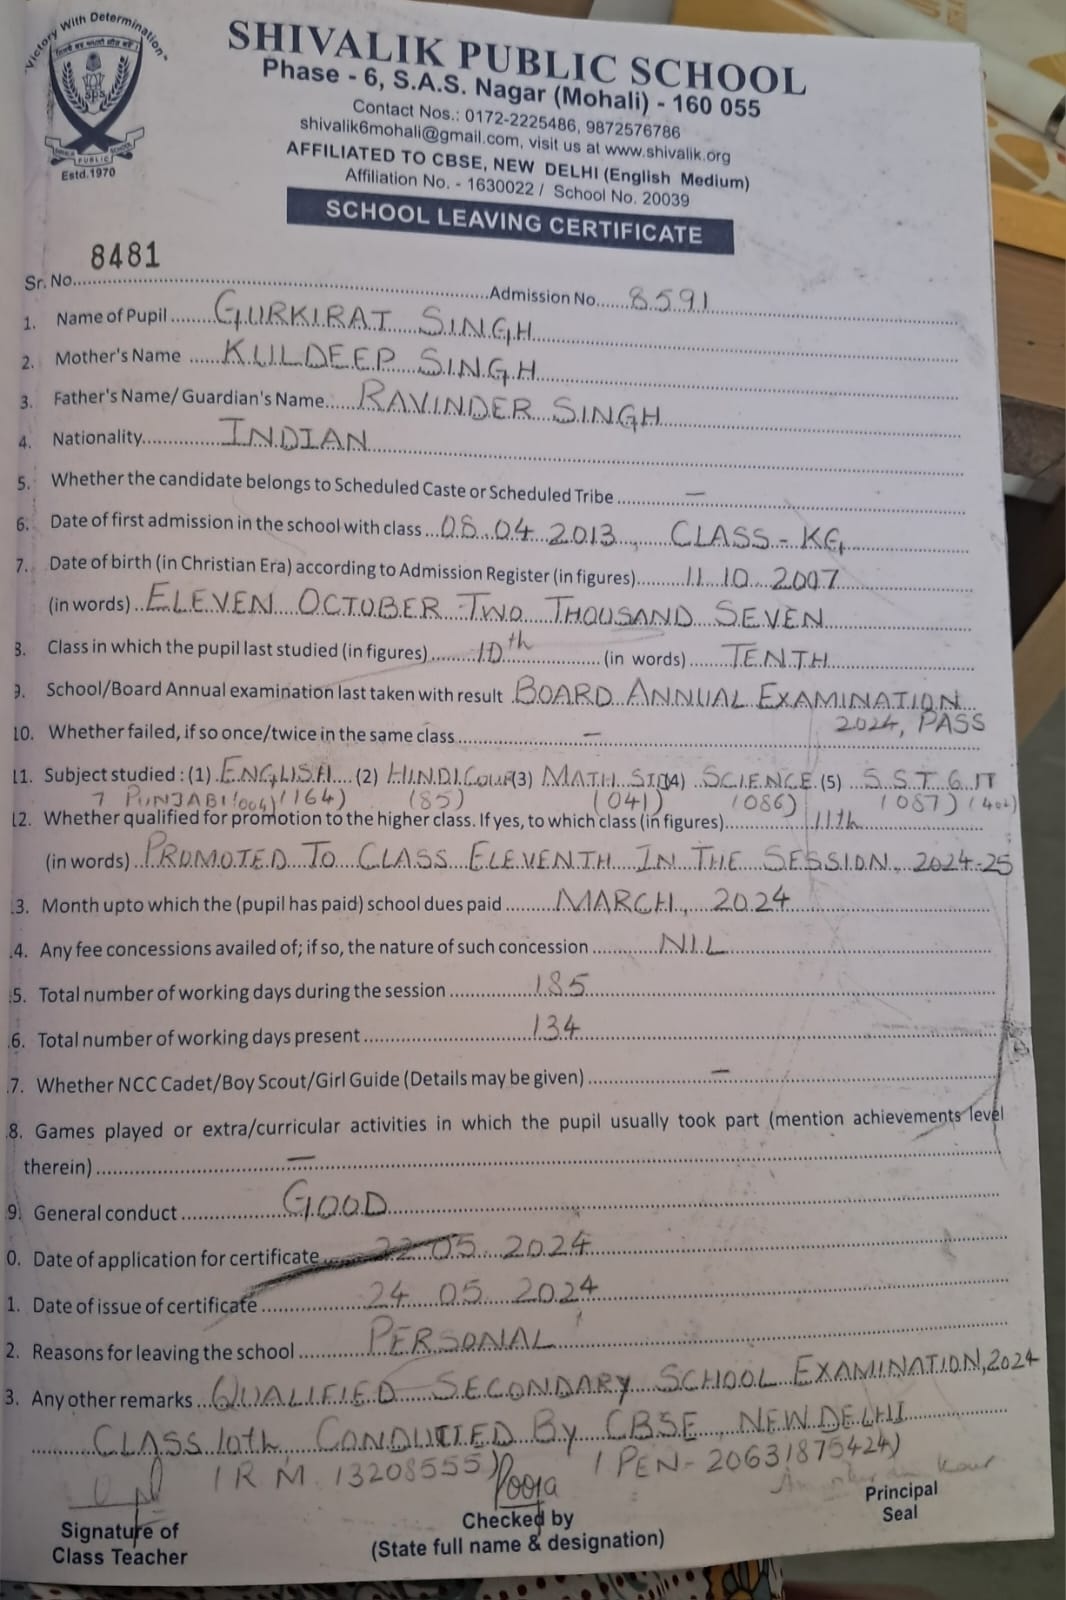 "Victory With Determination"
SPS
PUBLIC SCHOOL
Estd.1970
SHIVALIK PUBLIC SCHOOL
Phase - 6, S.A.S. Nagar (Mohali) - 160 055
Contact Nos.: 0172-2225486, 9872576786
shivalik6mohali@gmail.com, visit us at www.shivalik.org
AFFILIATED TO CBSE, NEW DELHI (English Medium)
Affiliation No. - 1630022 / School No. 20039
SCHOOL LEAVING CERTIFICATE
Sr. No. 8481 Admission No. 8591
1. Name of Pupil GURKIRAT SINGH
2. Mother's Name KULDEEP SINGH
3. Father's Name/ Guardian's Name RAVINDER SINGH
4. Nationality INDIAN
5. Whether the candidate belongs to Scheduled Caste or Scheduled Tribe —
6. Date of first admission in the school with class 08.04.2013, CLASS - KG
7. Date of birth (in Christian Era) according to Admission Register (in figures) 11.10.2007
(in words) ELEVEN OCTOBER TWO THOUSAND SEVEN
8. Class in which the pupil last studied (in figures) 10th (in words) TENTH
9. School/Board Annual examination last taken with result BOARD ANNUAL EXAMINATION
2024, PASS
10. Whether failed, if so once/twice in the same class —
11. Subject studied : (1) ENGLISH (2) HINDI COUR (3) MATH STD (4) SCIENCE (5) S.S.T 6 IT
7 PUNJABI (004) (184) (85) (041) (086) (087) (402)
12. Whether qualified for promotion to the higher class. If yes, to which class (in figures) 11th
(in words) PROMOTED TO CLASS ELEVENTH IN THE SESSION, 2024-25
3. Month upto which the (pupil has paid) school dues paid MARCH, 2024
4. Any fee concessions availed of; if so, the nature of such concession NIL
5. Total number of working days during the session 185
6. Total number of working days present 134
7. Whether NCC Cadet/Boy Scout/Girl Guide (Details may be given) —
8. Games played or extra/curricular activities in which the pupil usually took part (mention achievements level
therein) —
9. General conduct GOOD
0. Date of application for certificate 22.05.2024
1. Date of issue of certificate 24.05.2024
2. Reasons for leaving the school PERSONAL
3. Any other remarks QUALIFIED SECONDARY SCHOOL EXAMINATION, 2024
CLASS 10th CONDUCTED BY CBSE, NEW DELHI
(R.M. 13208555) (PEN- 20631875424)
Pooja
Signature of
Class Teacher
Checked by
(State full name & designation)
Principal
Seal